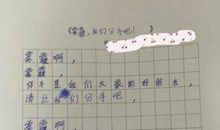 《雾霾,我们分手吧!》
雾霾啊,
雾霾,
你不是我们大家的好朋友,
请让我们分手吧,
雾霾啊,